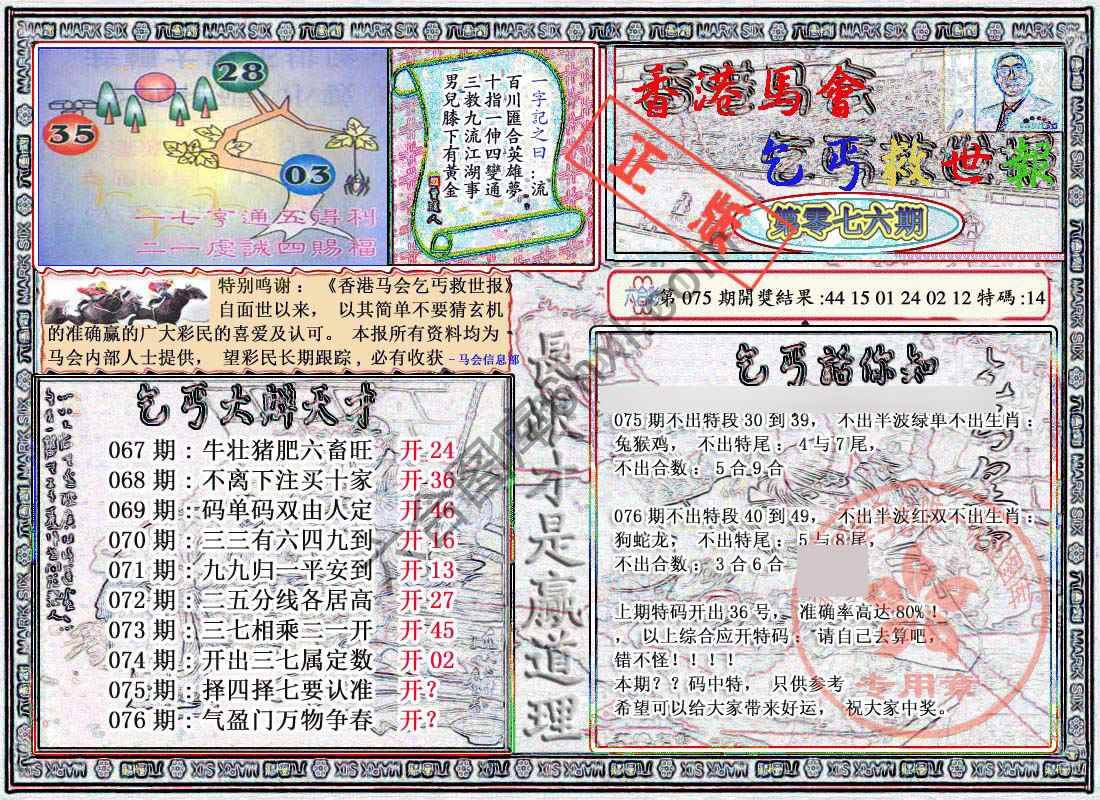 28
35
03
一七亨通五得利
二一虔誠四賜福
一字記之曰:流
百川匯合英雄夢
十指一伸四變通
三教九流江湖事
男兒膝下有黃金
香港馬會
乞丐救世報
第零七六期
正版
特别鸣谢：《香港马会乞丐救世报》
自面世以来， 以其简单不要猜玄机
的准确赢的广大彩民的喜爱及认可。 本报所有资料均为
马会内部人士提供， 望彩民长期跟踪，必有收获 -马会信息部
第075期開獎結果:44 15 01 24 02 12 特碼:14
乞丐大解天才
067期：牛壮猪肥六畜旺 开24
068期：不离下注买十家 开36
069期：码单码双由人定 开46
070期：三三有六四九到 开16
071期：九九归一平安到 开13
072期：三五分线各居高 开27
073期：三七相乘二一开 开45
074期：开出三七属定数 开02
075期：择四择七要认准 开?
076期：气盈门万物争春 开?
是赢道理
乞丐話你知
075期不出特段30到39， 不出半波绿单不出生肖：
兔猴鸡， 不出特尾：4与7尾，
不出合数：5合9合
076期不出特段40到49， 不出半波红双不出生肖：
狗蛇龙， 不出特尾：5与8尾，
不出合数：3合6合
上期特码开出36号， 准确率高达80%！
， 以上综合应开特码：请自己去算吧，
错不怪！！！！
本期？？码中特， 只供参考
希望可以给大家带来好运， 祝大家中奖。
专用章